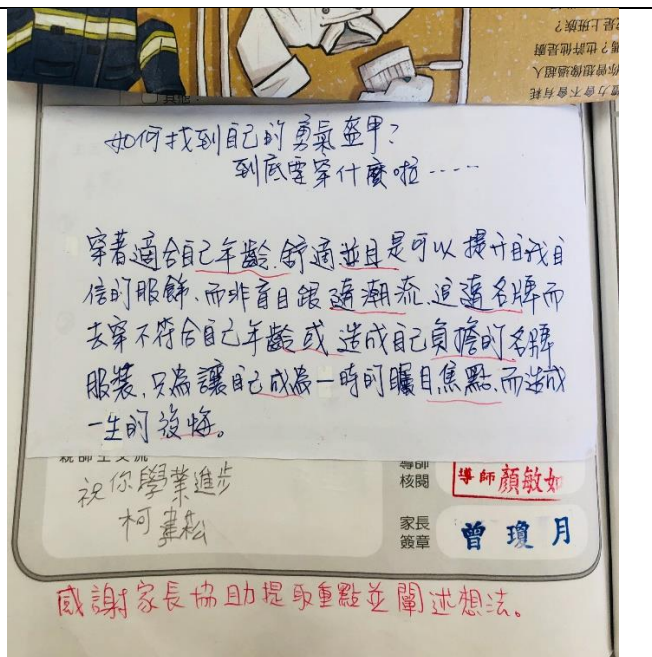 如何找到自己的勇氣盔甲?
到底要穿什麼啦……
穿著適合自己年齡、舒適並且是可以提升自我自
信的服飾、而非盲目跟隨潮流、追隨名牌而
去穿不符合自己年齡或造成自己負擔的名牌
服裝、只為讓自己成為一時的矚目焦點、而造成
一生的後悔。
祝你學業進步
導師
核閱
導師 顏敏如
家長
簽章
曾瓊月
感謝家長協助提取重點並闡述想法。